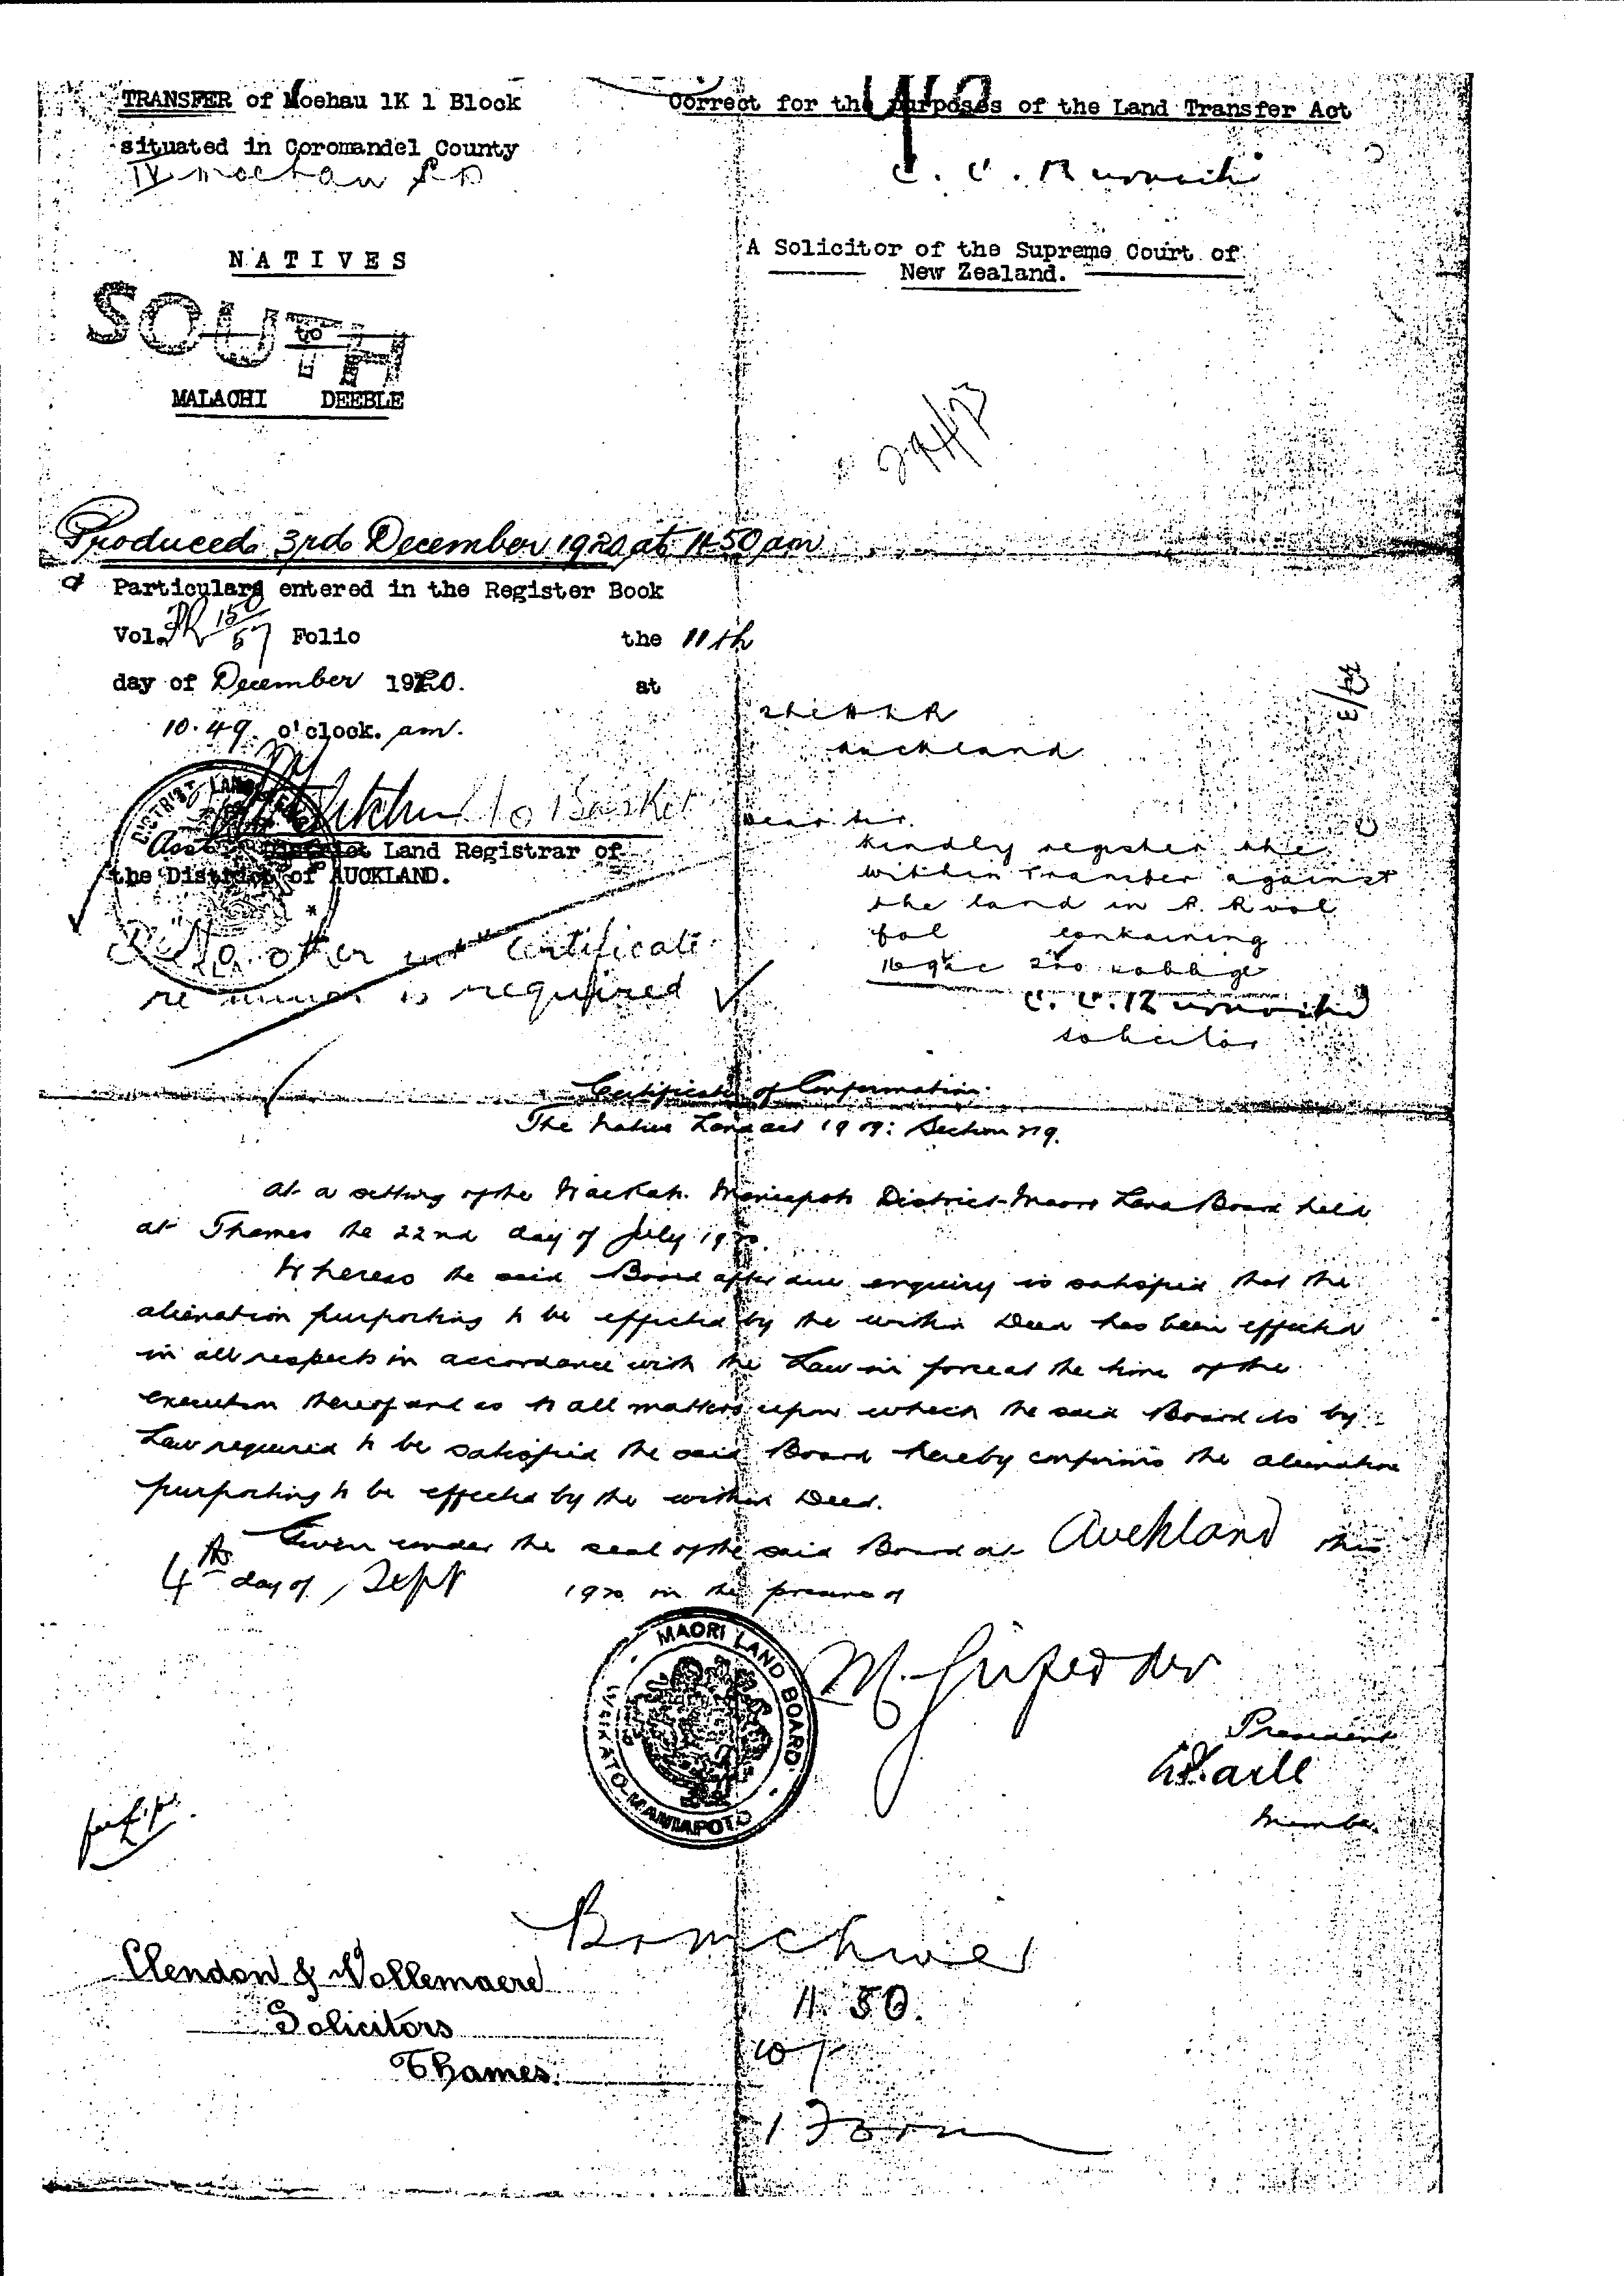 TRANSFER of Moehau 1K 1 Block
situated in Coromandel County
IV Moehau S.D
NATIVES
SOUTH
to
MALACHI DEEBLE
Correct for the purposes of the Land Transfer Act
A Solicitor of the Supreme Court of
New Zealand.
Produced 3rd December 1920 at 11.50 am
Particulars entered in the Register Book
Vol. PR 150/57 Folio the 11th
day of December 1920. at
10.49 o'clock. am.
Asst District Land Registrar of
the District of AUCKLAND.
No other certificate
re is required
Auckland
Dear Sir.
Kindly register the
within Transfer against
the land in P. R vol
fol containing
solicitor
Certificate of Confirmation.
The Native Land Act 1909: Section 219.
At a sitting of the Waikato Maniapoto District Maori Land Board held
at Thames the 22nd day of July 1920.
Whereas the said Board after due enquiry is satisfied that the
alienation purporting to be effected by the within Deed has been effected
in all respects in accordance with the Law in force at the time of the
execution thereof and as to all matters upon which the said Board is by
Law required to be satisfied the said Board hereby confirms the alienation
purporting to be effected by the within Deed.
Given under the seal of the said Board at Auckland this
4th day of Sept 1920 in the presence of
MAORI LAND BOARD
WAIKATO-MANIAPOTO
President
Member
Clendon & Vollemaere
Solicitors
Thames.
11.50.
10/-
1 Form